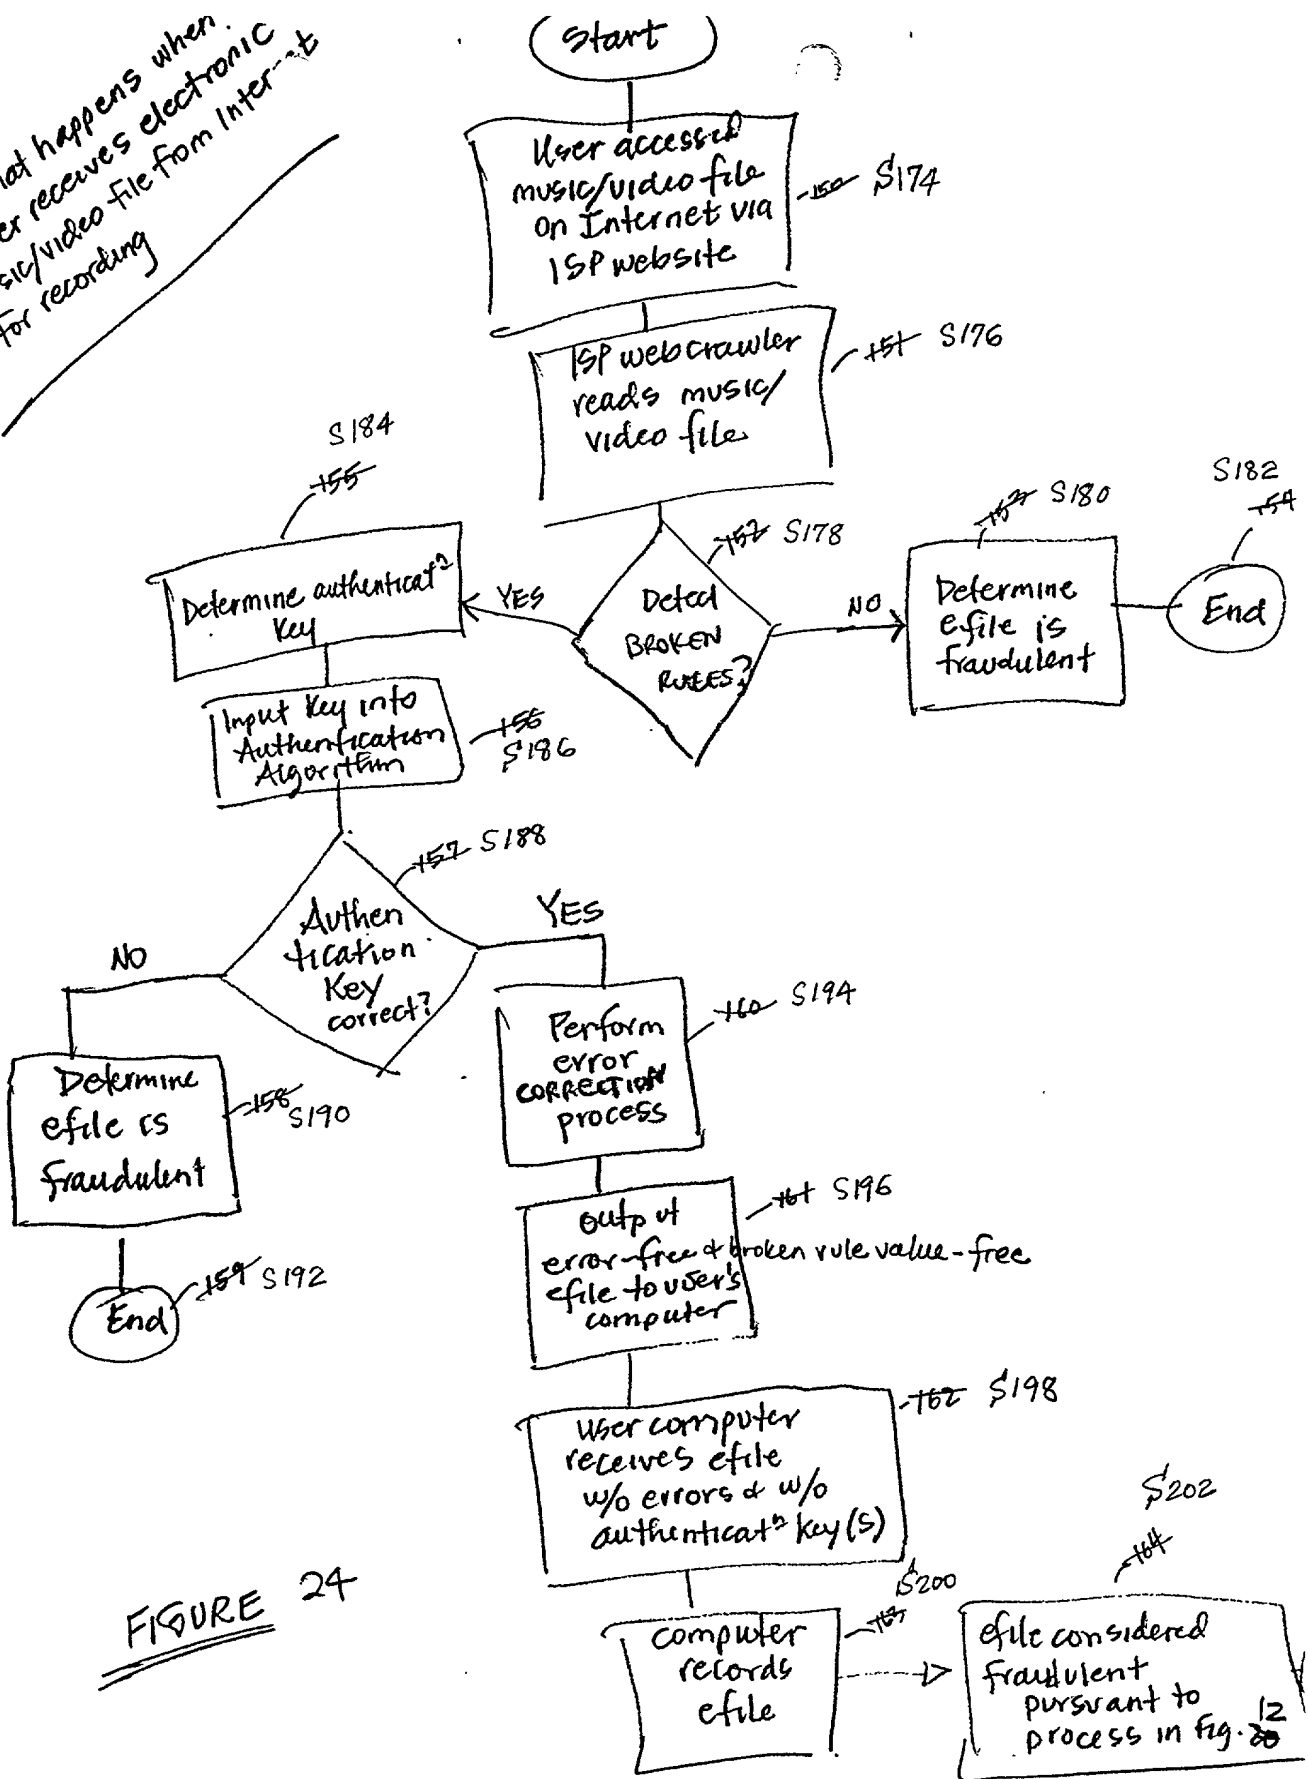 hat happens when
er receives electronic
sic/video file from Internet
for recording
Start
User accessed
music/video file
on Internet via
ISP website
150 S174
ISP webcrawler
reads music/
video file
151 S176
Detect
BROKEN
RULES?
152 S178
YES
NO
Determine
efile is
fraudulent
153 S180
End
S182
154
S184
155
Determine authenticatⁿ
Key
Input Key into
Authentication
Algorithm
156
S186
Authen
tication
Key
correct?
157 S188
NO
YES
Determine
efile is
fraudulent
158
S190
End
159 S192
Perform
error
CORRECTION
process
160 S194
output
error-free & broken rule value-free
efile to user's
computer
161 S196
User computer
receives efile
w/o errors & w/o
authenticatⁿ key(s)
162 S198
computer
records
efile
S200
163
efile considered
fraudulent
pursuant to
process in fig. 12
S202
164
FIGURE 24